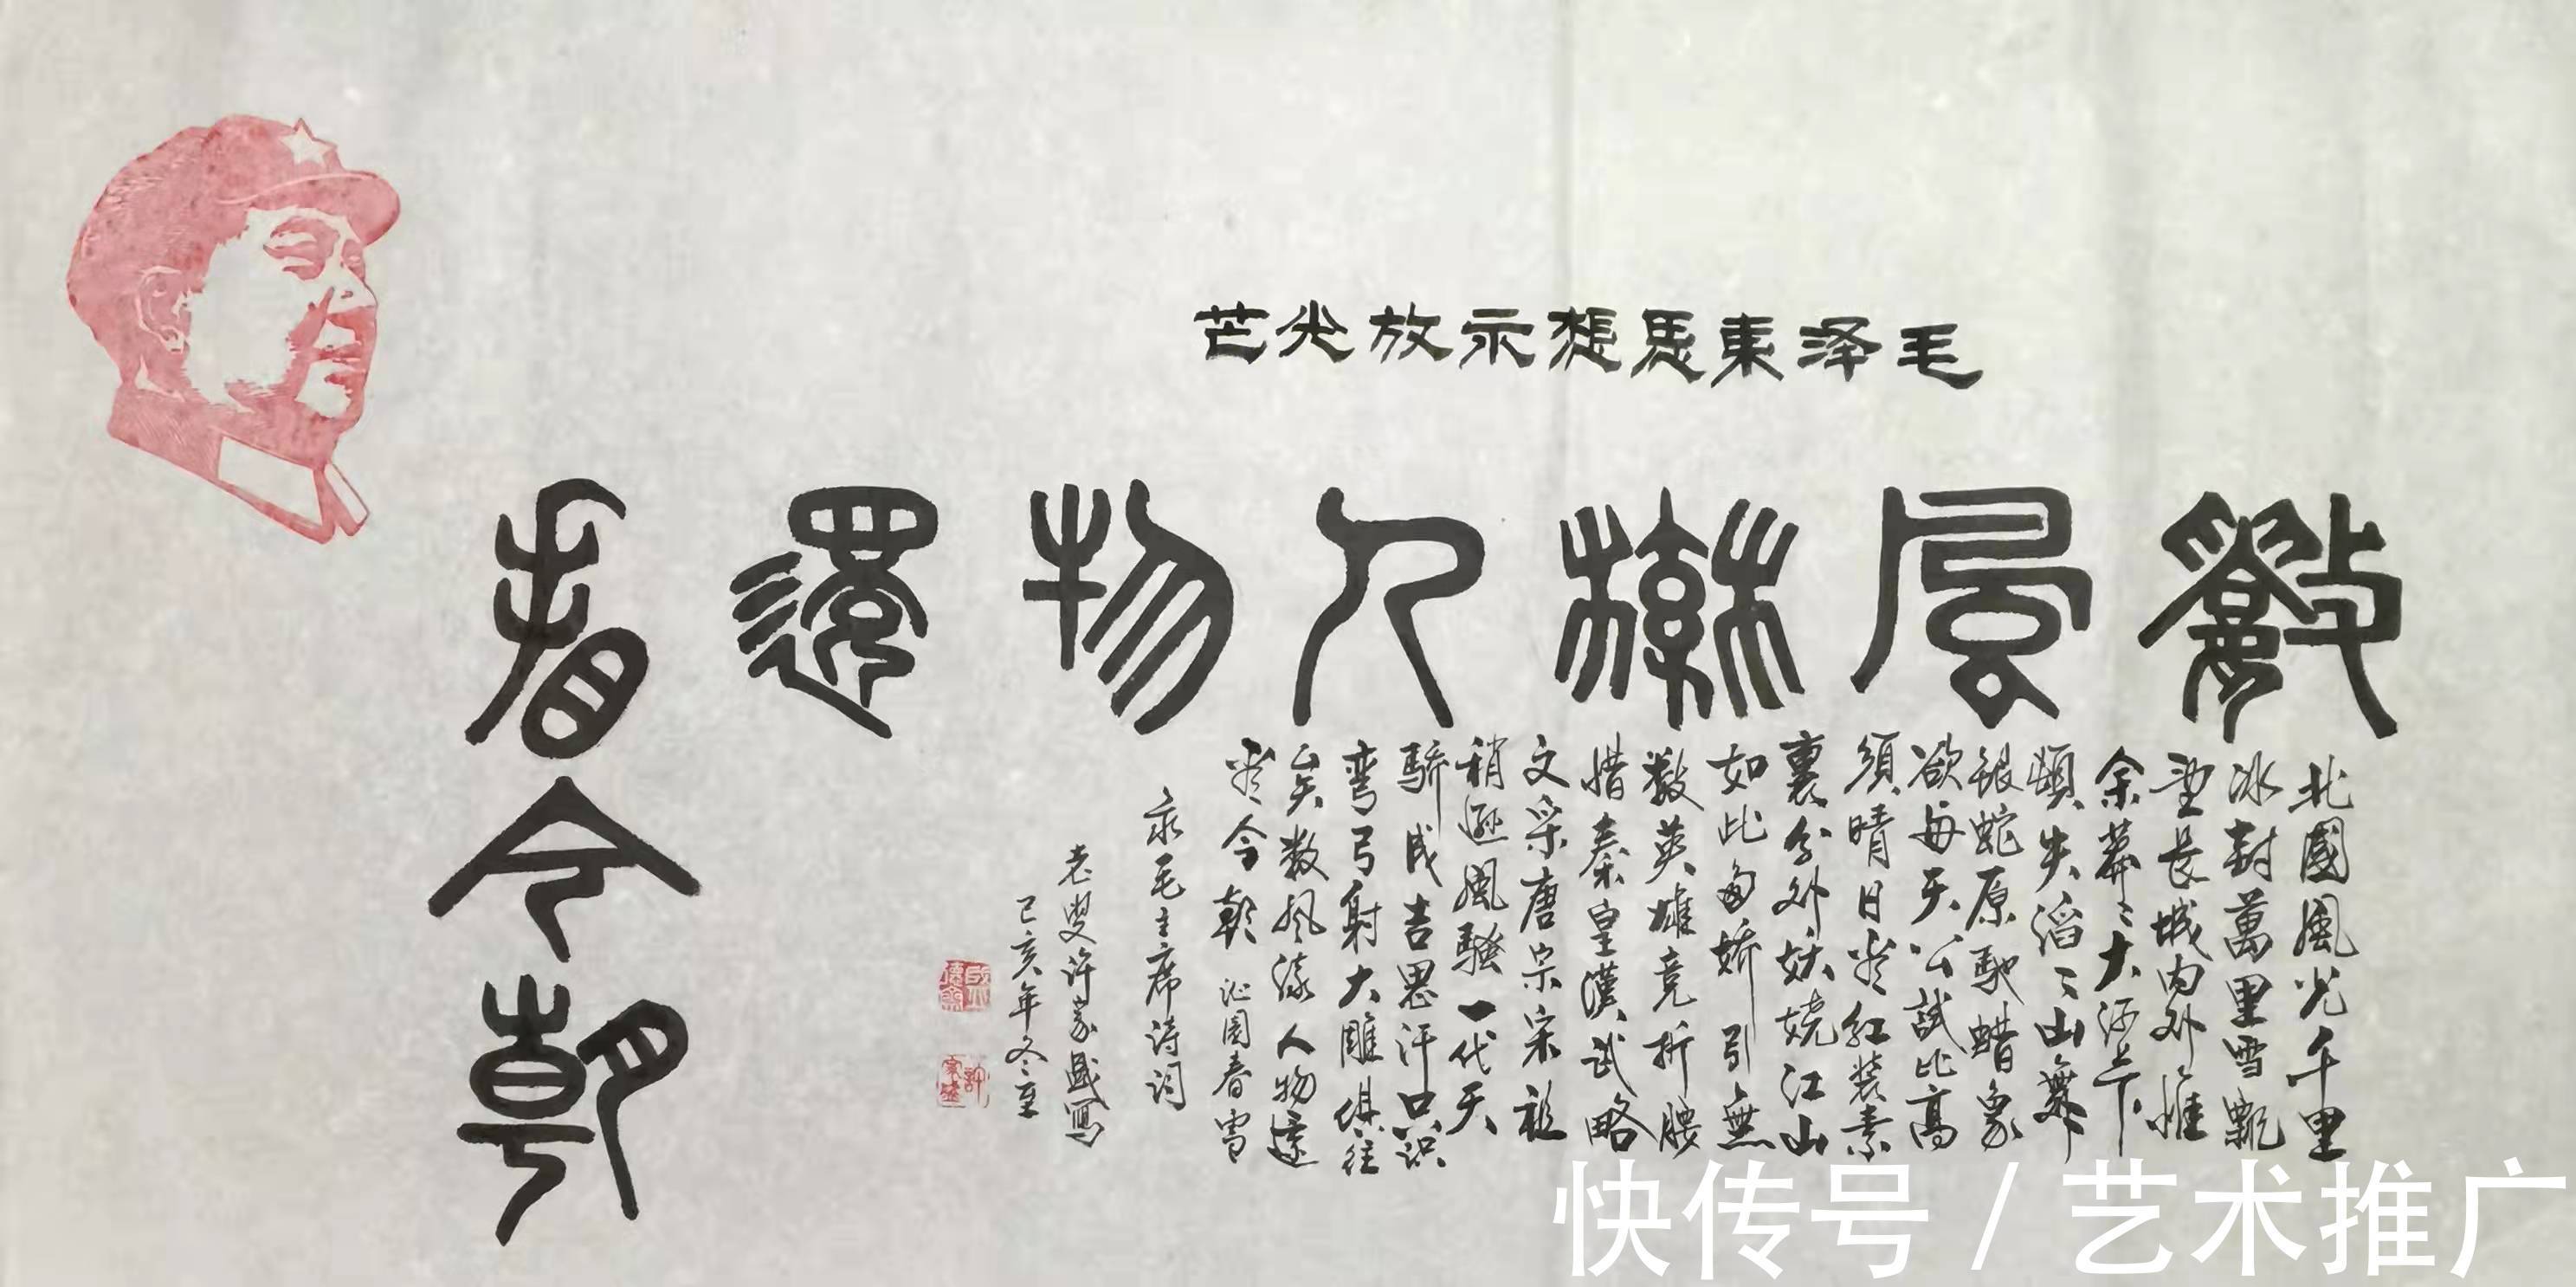 毛泽東思想永放光芒
數風流人物還
看今朝
北國風光千里
冰封萬里雪飄
望長城内外惟
余莽〻大河上下
頓失滔〻山舞
银蛇原馳蜡象
欲与天公試比高
須晴日看红装素
裹分外妖娆江山
如此多娇引無
数英雄竞折腰
惜秦皇漢武略
文采唐宗宋祖
稍逊風騷一代天
骄成吉思汗只识
弯弓射大雕俱往
矣数风流人物還
看今朝 沁園春雪
录毛主席诗词
老叟许家盛寫
己亥年冬至
許家盛
快传号 / 艺术推广